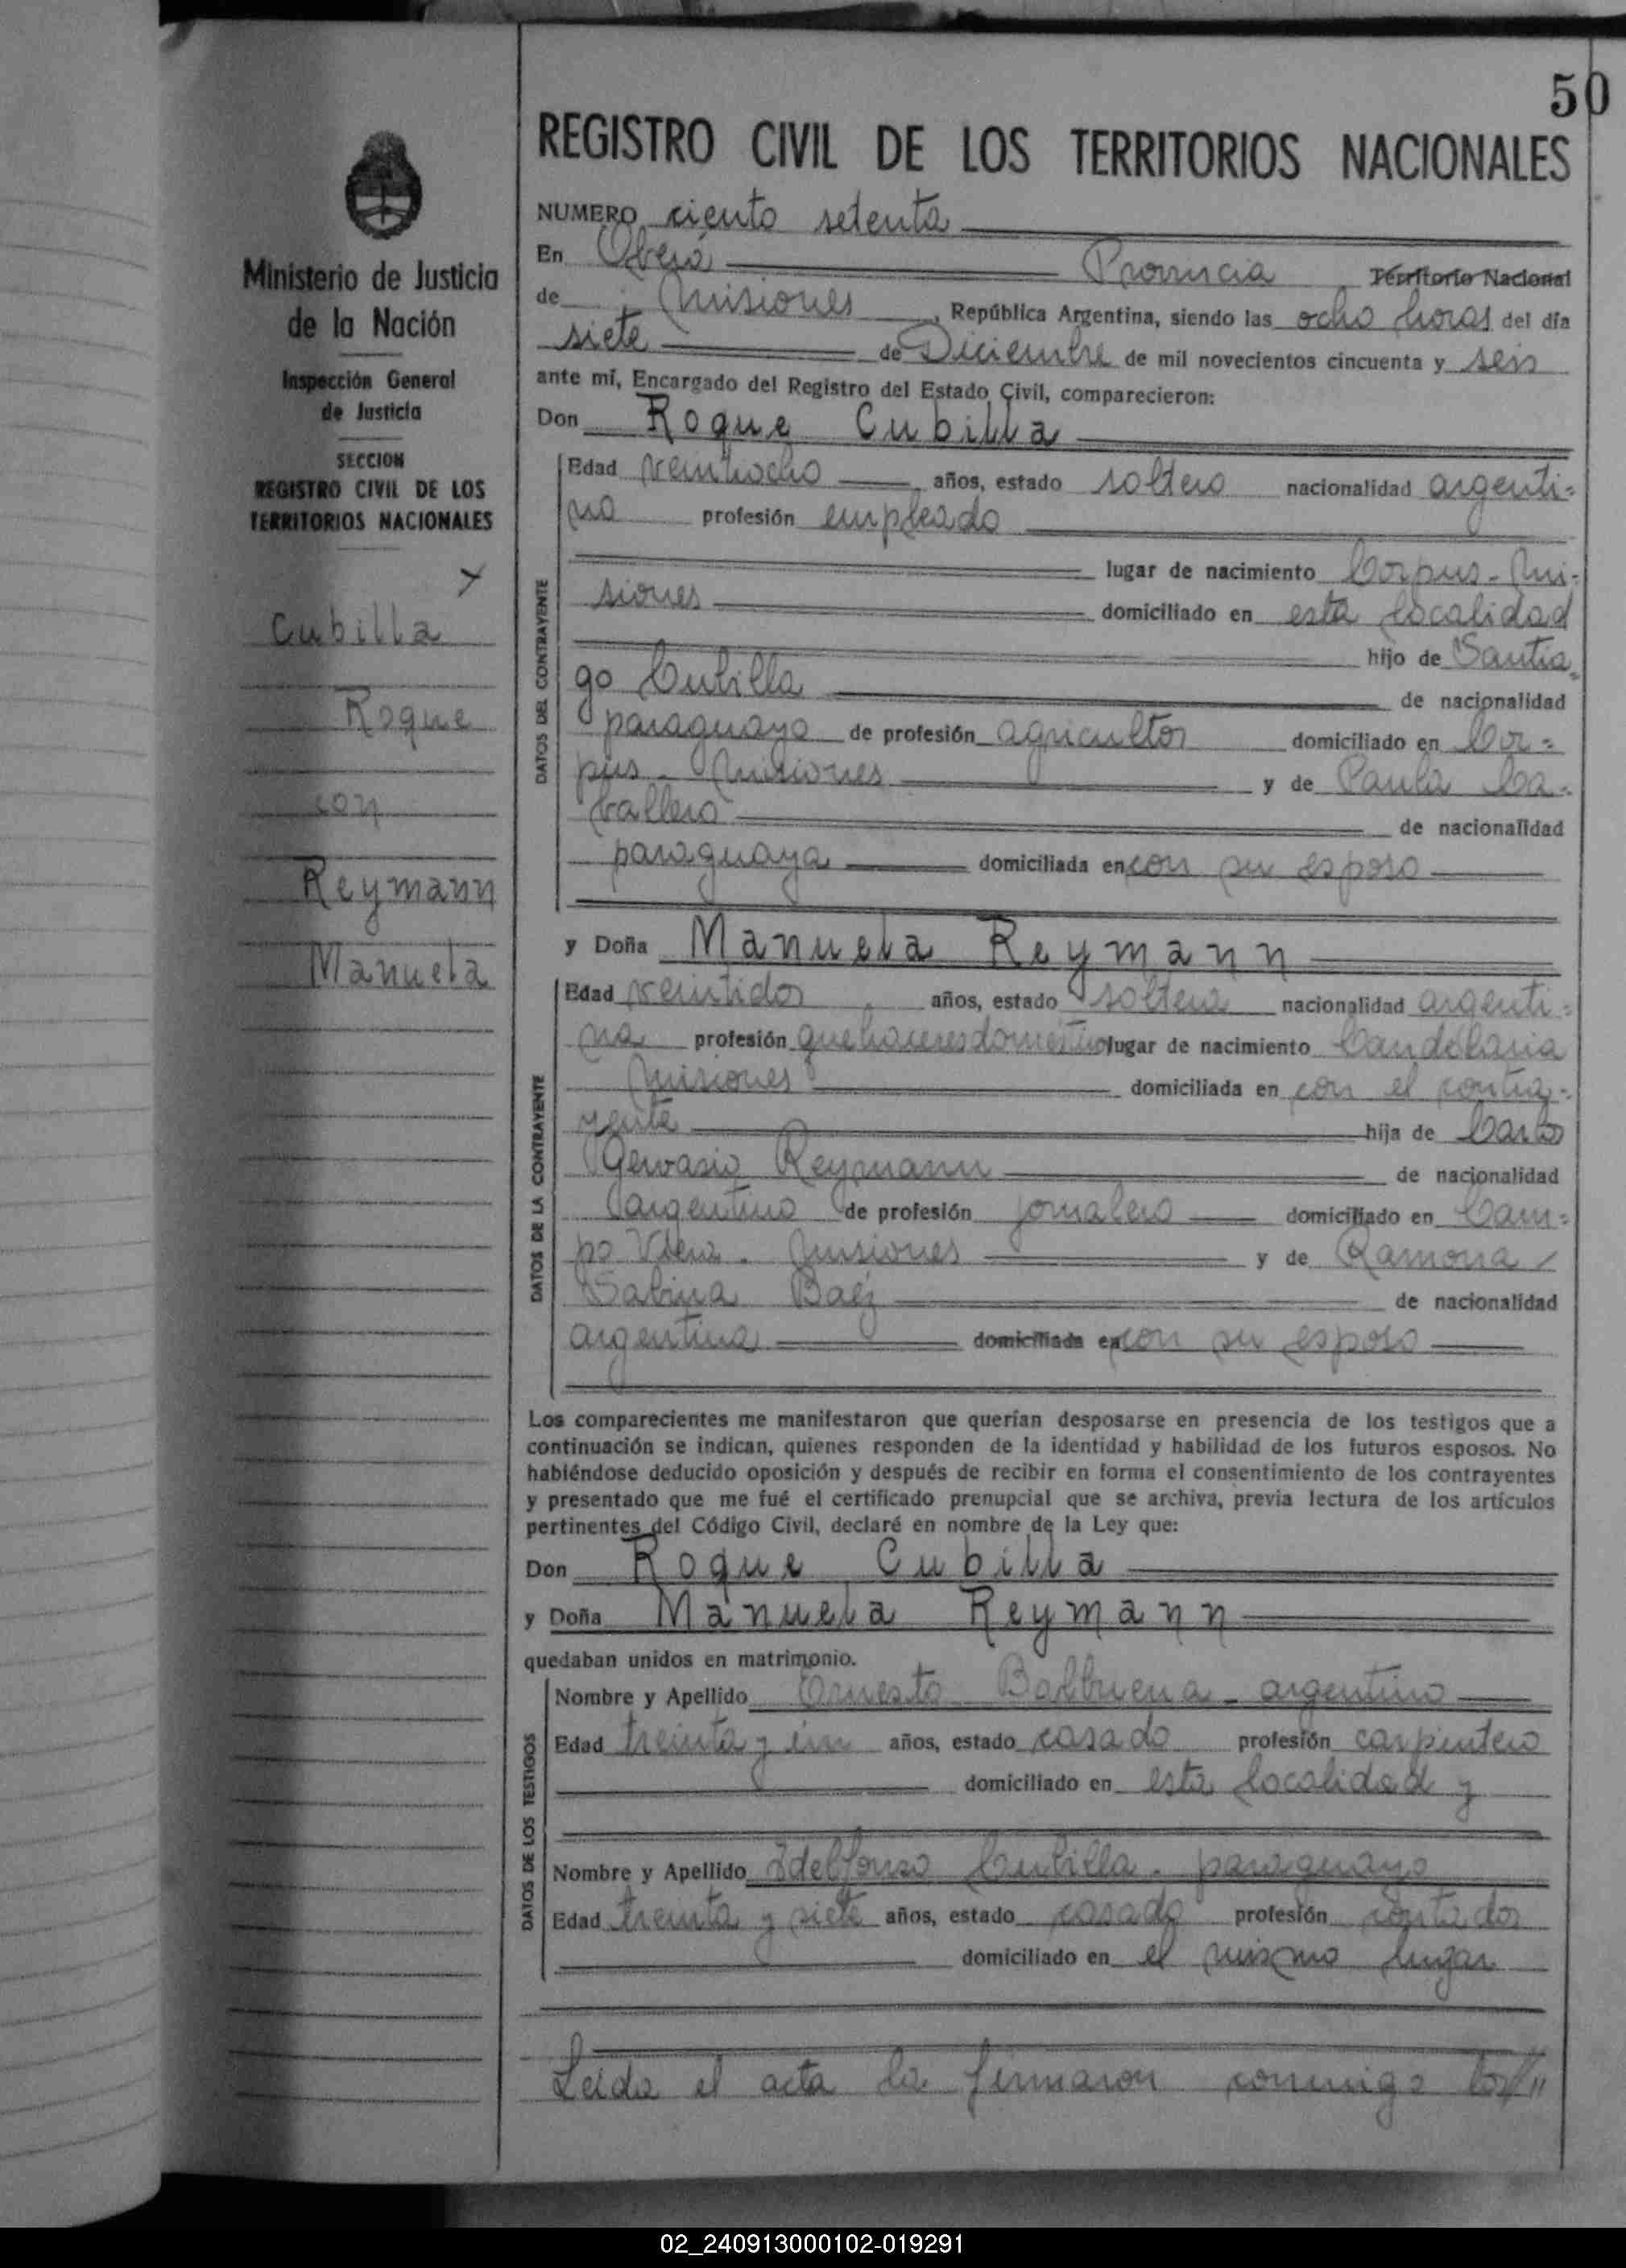 50
REGISTRO CIVIL DE LOS TERRITORIOS NACIONALES
Ministerio de Justicia
de la Nación
Inspección General
de Justicia
SECCION
REGISTRO CIVIL DE LOS
TERRITORIOS NACIONALES
Cubilla
Roque
con
Reymann
Manuela
NUMERO ciento setenta
En Oberá Provincia Territorio Nacional
de Misiones, República Argentina, siendo las ocho horas del día
siete de Diciembre de mil novecientos cincuenta y seis
ante mí, Encargado del Registro del Estado Civil, comparecieron:
Don Roque Cubilla
DATOS DEL CONTRAYENTE
Edad veintiocho años, estado soltero nacionalidad argenti-
no profesión empleado
lugar de nacimiento Corpus - Mi-
siones domiciliado en esta localidad
hijo de Santia-
go Cubilla de nacionalidad
paraguayo de profesión agricultor domiciliado en Cor-
pus - Misiones y de Paula Ca-
ballero de nacionalidad
paraguaya domiciliada en con su esposo
y Doña Manuela Reymann
DATOS DE LA CONTRAYENTE
Edad veintidos años, estado soltera nacionalidad argenti-
na profesión quehaceres domésticos lugar de nacimiento Candelaria
Misiones domiciliada en con el contra-
yente hija de Carlos
Gervasio Reymann de nacionalidad
argentino de profesión jornalero domiciliado en Cam-
po Viera - Misiones y de Ramona
Sabina Baéz de nacionalidad
argentina domiciliada en con su esposo
Los comparecientes me manifestaron que querían desposarse en presencia de los testigos que a
continuación se indican, quienes responden de la identidad y habilidad de los futuros esposos. No
habiéndose deducido oposición y después de recibir en forma el consentimiento de los contrayentes
y presentado que me fué el certificado prenupcial que se archiva, previa lectura de los artículos
pertinentes del Código Civil, declaré en nombre de la Ley que:
Don Roque Cubilla
y Doña Manuela Reymann
quedaban unidos en matrimonio.
DATOS DE LOS TESTIGOS
Nombre y Apellido Ernesto Balbuena - argentino
Edad treinta y un años, estado casado profesión carpintero
domiciliado en esta localidad y
Nombre y Apellido Idelfonso Cubilla - paraguayo
Edad treinta y siete años, estado casado profesión contador
domiciliado en el mismo lugar
Leida el acta la firmaron conmigo los//"
02_240913000102-019291